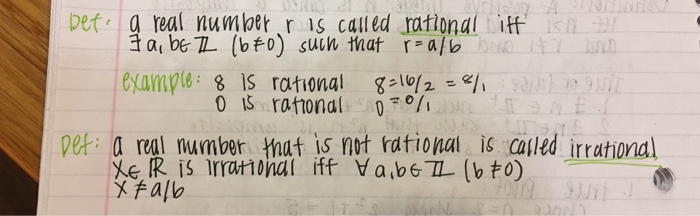 Def: a real number r is called rational iff
∃ a, b ∈ ℤ (b ≠ 0) such that r = a/b
example: 8 is rational 8 = 16/2 = 8/1
0 is rational 0 = 0/1
Def: a real number that is not rational is called irrational
x ∈ ℝ is irrational iff ∀ a, b ∈ ℤ (b ≠ 0)
x ≠ a/b